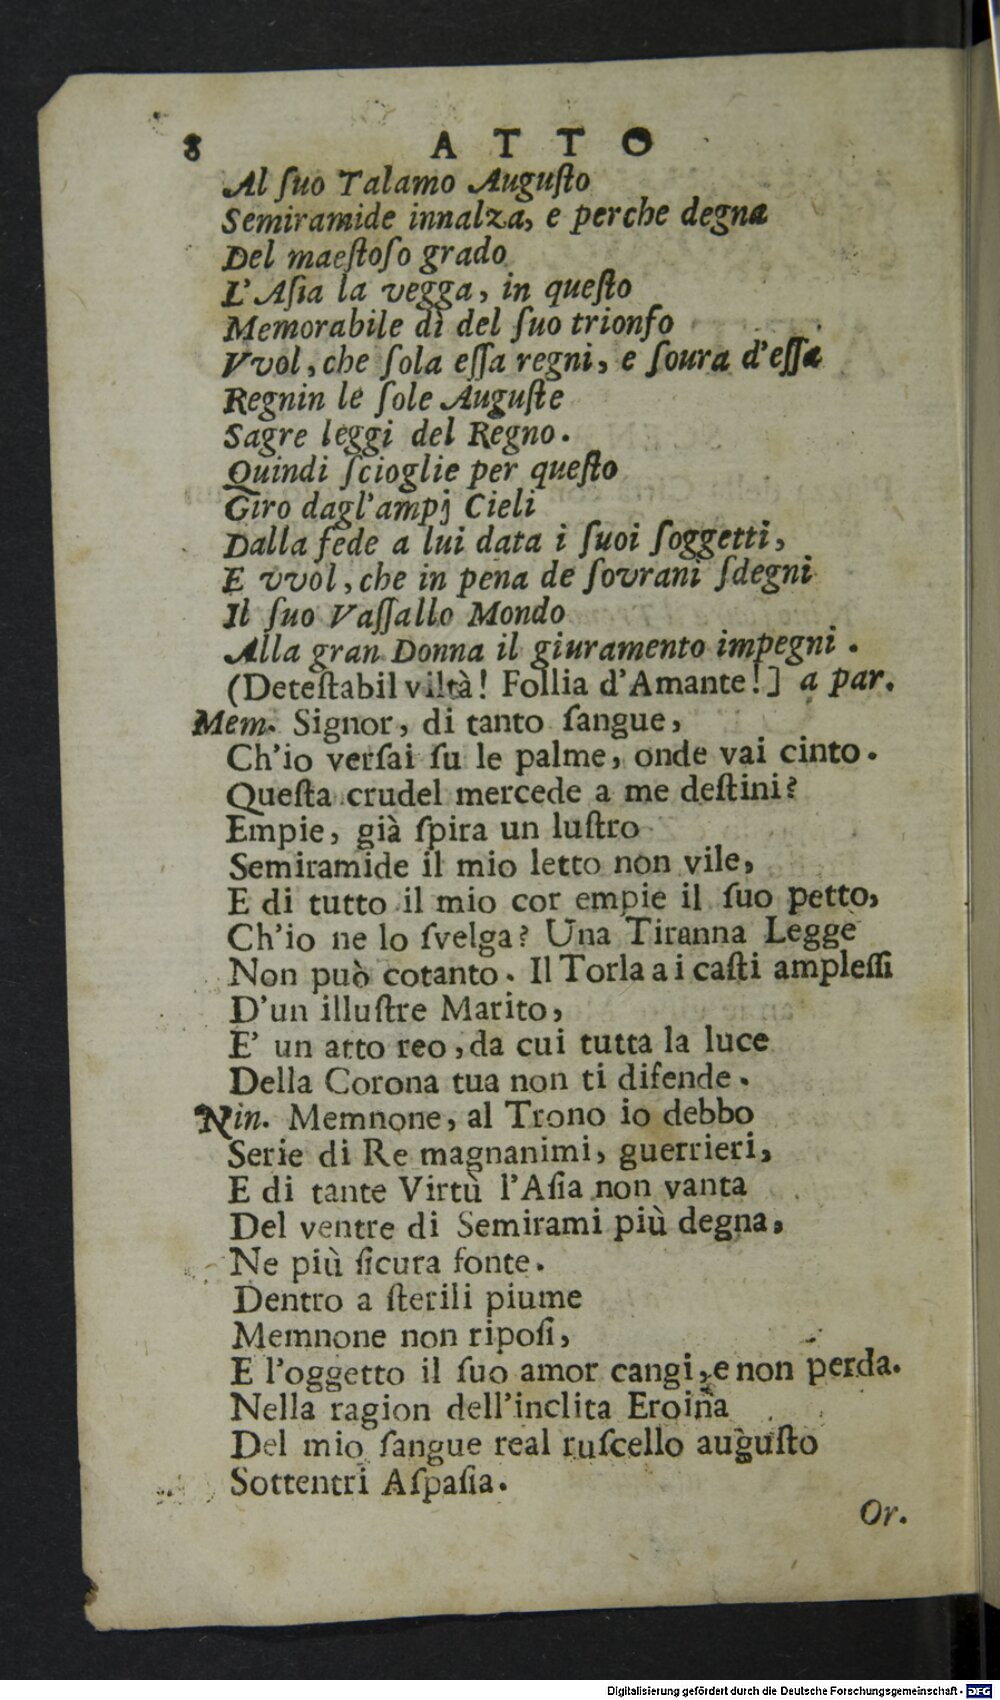 8 ATTO
Al ſuo Talamo Auguſto
Semiramide innalza, e perche degna
Del maeſtoſo grado
L'Aſia la vegga, in queſto
Memorabile dì del ſuo trionfo
Vvol, che ſola eſſa regni, e ſoura d'eſſa
Regnin le ſole Auguſte
Sagre leggi del Regno.
Quindi ſcioglie per queſto
Giro dagl'ampj Cieli
Dalla fede a lui data i ſuoi ſoggetti,
E vvol, che in pena de ſovrani ſdegni
Il ſuo Vaſſallo Mondo
Alla gran Donna il giuramento impegni.
(Deteſtabil viltà! Follia d'Amante!] a par.
Mem. Signor, di tanto ſangue,
Ch'io verſai ſu le palme, onde vai cinto.
Queſta crudel mercede a me deſtini?
Empie, già ſpira un luſtro
Semiramide il mio letto non vile,
E di tutto il mio cor empie il ſuo petto,
Ch'io ne lo ſvelga? Una Tiranna Legge
Non può cotanto. Il Torla a i caſti ampleſſi
D'un illuſtre Marito,
E' un atto reo, da cui tutta la luce
Della Corona tua non ti difende.
Nin. Memnone, al Trono io debbo
Serie di Re magnanimi, guerrieri,
E di tante Virtù l'Aſia non vanta
Del ventre di Semirami più degna,
Ne più ſicura fonte.
Dentro a ſterili piume
Memnone non ripoſi,
E l'oggetto il ſuo amor cangi, e non perda.
Nella ragion dell'inclita Eroina
Del mio ſangue real ruſcello auguſto
Sottentri Aſpaſia.
Or.
Digitalisierung gefördert durch die Deutsche Forschungsgemeinschaft - DFG